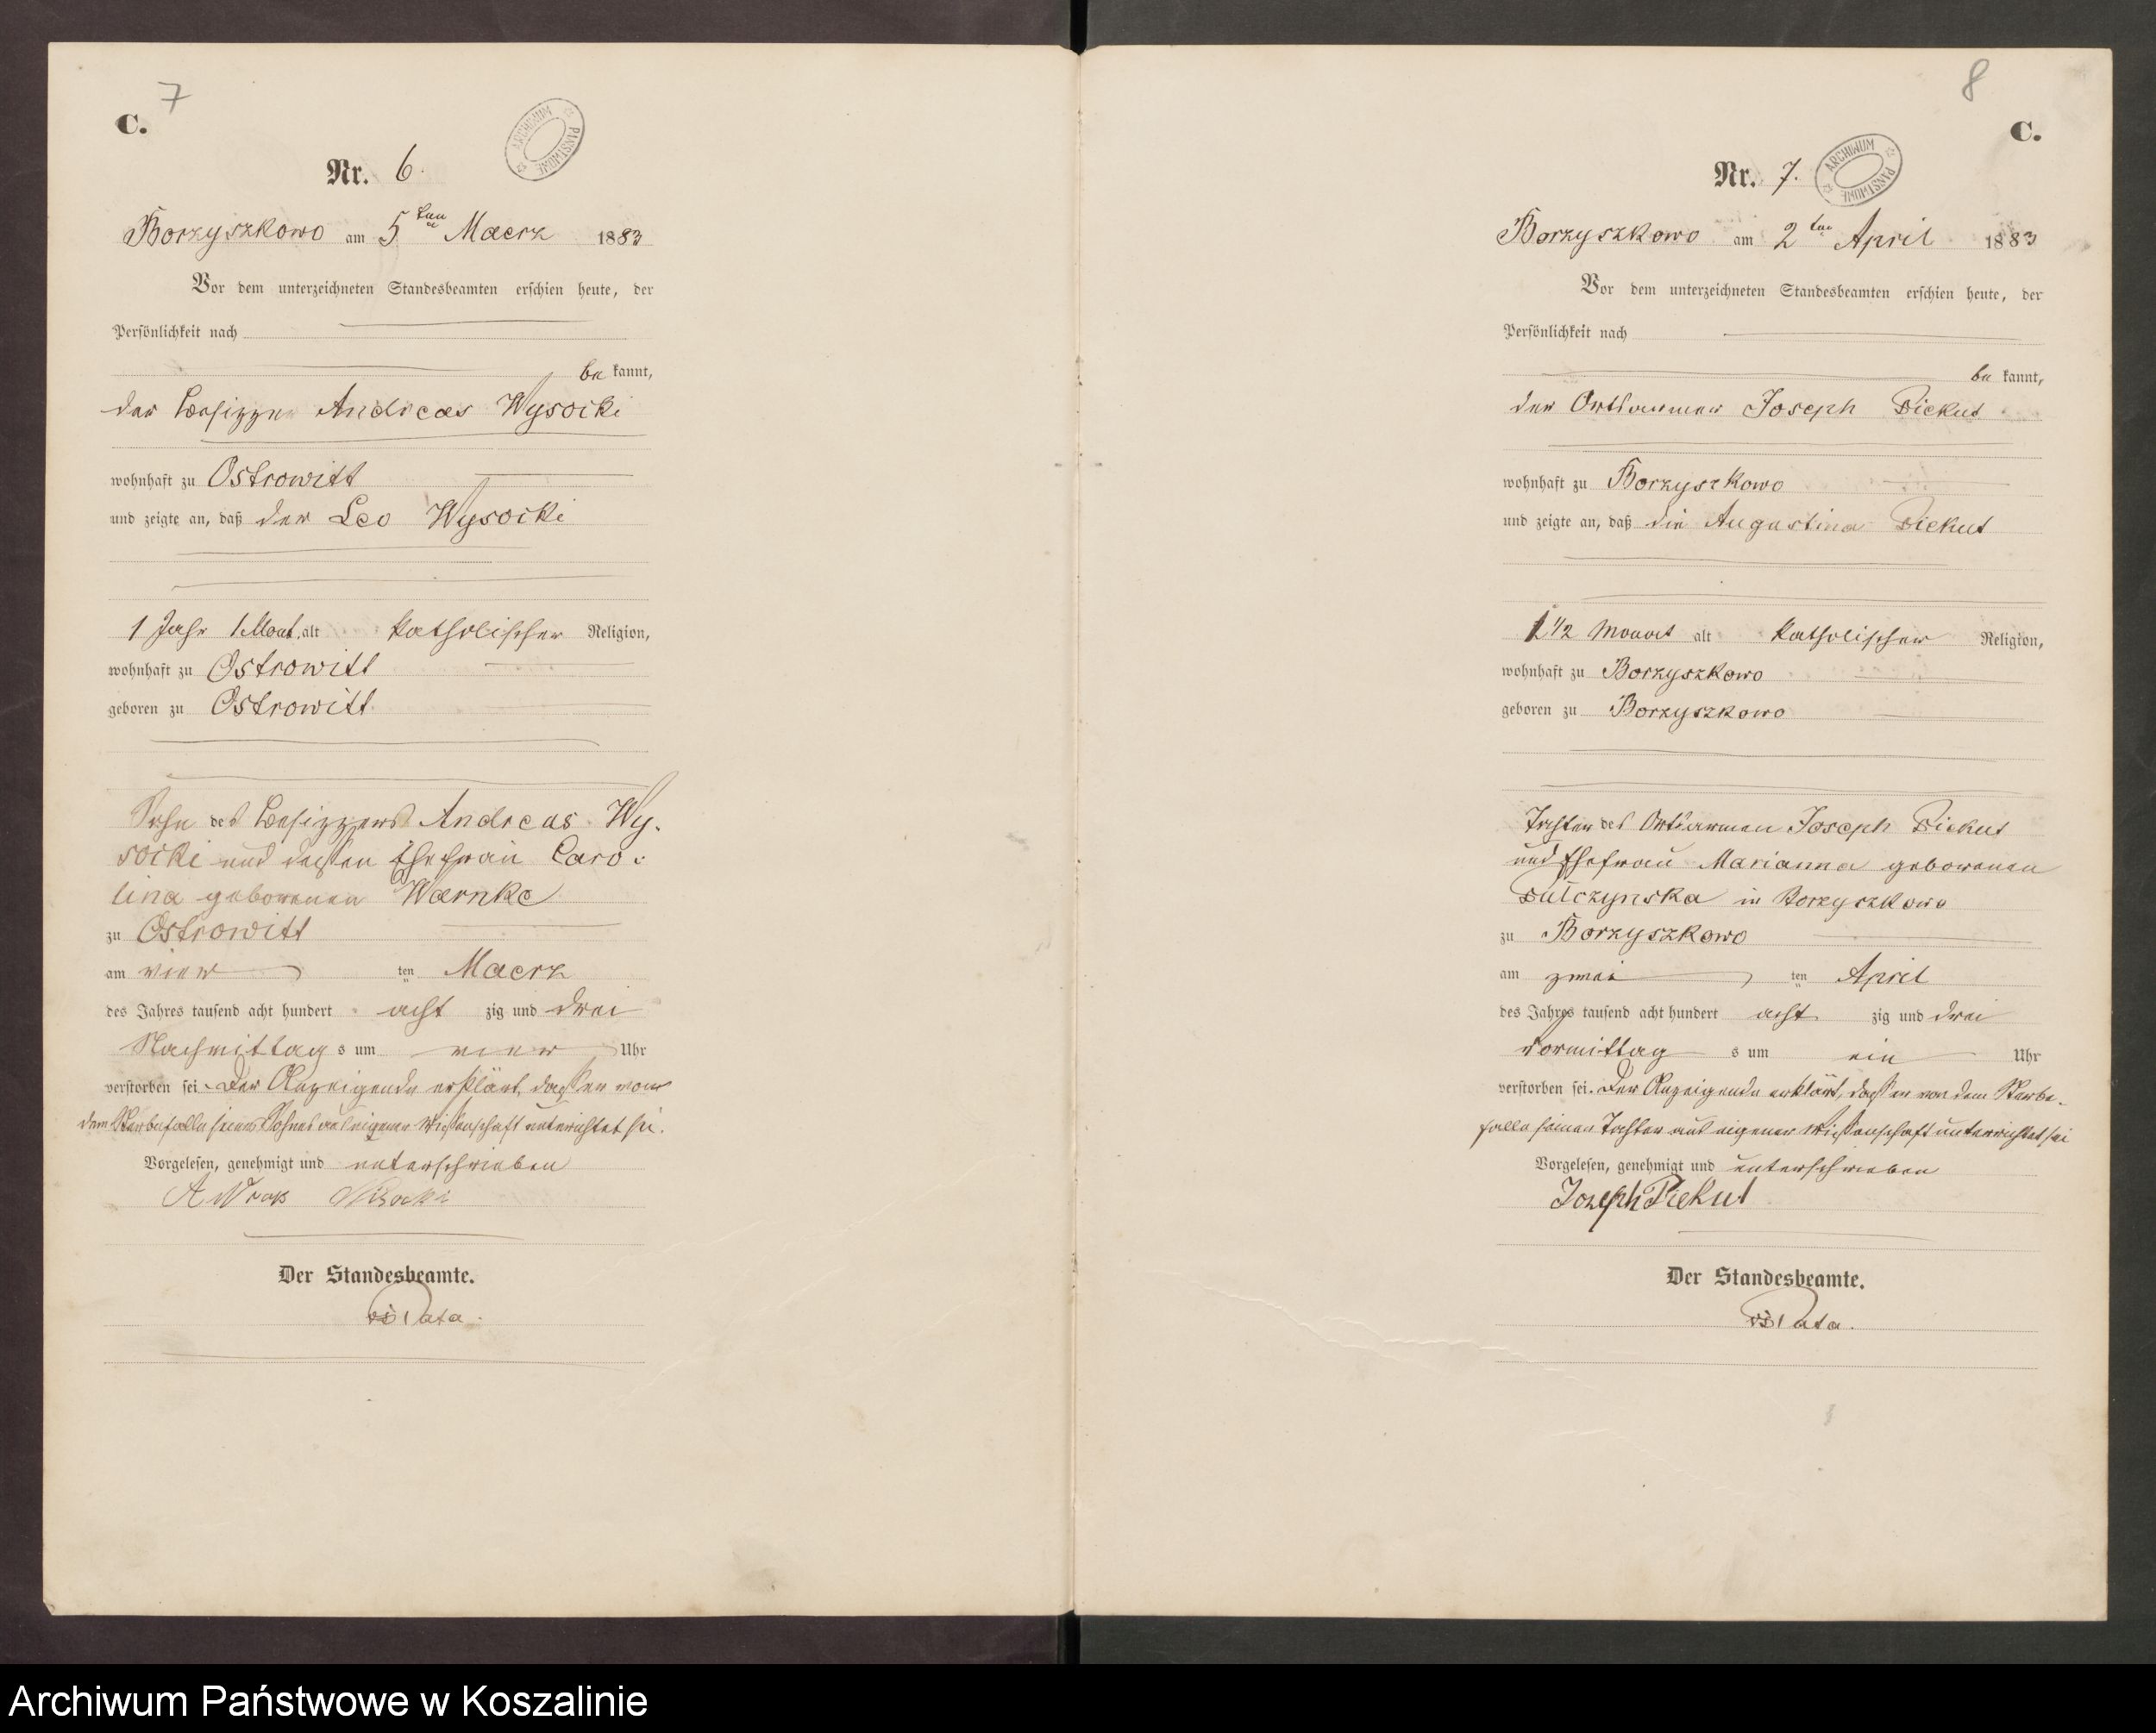 7
C.
ARCHIWUM PAŃSTWOWE
Nr. 6.
Borzyszkowo am 5ten Maerz 1883
Vor dem unterzeichneten Standesbeamten erschien heute, der
Persönlichkeit nach
be kannt,
der Besizzer Andreas Wysocki
wohnhaft zu Ostrowitt
und zeigte an, daß der Leo Wysocki
1 Jahr 1 Monat alt katholischer Religion,
wohnhaft zu Ostrowitt
geboren zu Ostrowitt
Sohn des Besizzers Andreas Wy-
socki und dessen Ehefrau Caro-
lina geborenen Warnke
zu Ostrowitt
am vier ten Maerz
des Jahres tausend acht hundert acht zig und drei
Nachmittag s um vier Uhr
verstorben sei. Der Anzeigende erklärt, dass er von
dem Sterbefalle seines Sohnes aus eigener Wissenschaft unterrichtet sei.
Vorgelesen, genehmigt und unterschrieben
Der Standesbeamte.
8
C.
ARCHIWUM PAŃSTWOWE
Nr. 7.
Borzyszkowo am 2ten April 1883
Vor dem unterzeichneten Standesbeamten erschien heute, der
Persönlichkeit nach
be kannt,
der Ortsarmer Joseph Piekut
wohnhaft zu Borzyszkowo
und zeigte an, daß die Augustina Piekut
1/2 Monat alt katholischer Religion,
wohnhaft zu Borzyszkowo
geboren zu Borzyszkowo
Tochter des Ortsarmen Joseph Piekut
und Ehefrau Marianna geborenen
Dulczynska in Borzyszkowo
zu Borzyszkowo
am zwei ten April
des Jahres tausend acht hundert acht zig und drei
Vormittag s um ein Uhr
verstorben sei. Der Anzeigende erklärt, dass er von dem Sterbe-
falle seiner Tochter aus eigener Wissenschaft unterrichtet sei
Vorgelesen, genehmigt und unterschrieben
Joseph Piekut
Der Standesbeamte.
Archiwum Państwowe w Koszalinie